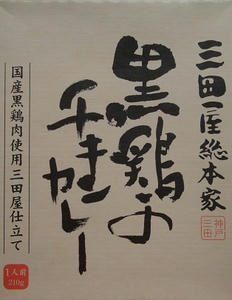 三田屋総本家
黒鶏の
チキンカレー
国産黒鶏肉使用三田屋仕立て
神戸
三田
1人前
210g